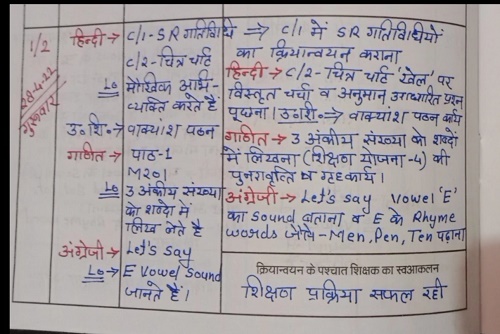 1/2
28-4-22
गुरुवार
हिन्दी → C/1- SR गतिविधि
C/2- चित्र चार्ट
Lo मौखिक अभि-
व्यक्ति करते हैं
उ०शि०→ वाक्यांश पठन
गणित → पाठ-1
M201
Lo 3 अंकीय संख्या
को शब्दों में
लिख लेते है
अंग्रेजी → Let's say
Lo → E Vowel Sound
जानते हैं।
⇒ C/1 में SR गतिविधियों
का क्रियान्वयन कराना
हिन्दी → C/2- चित्र चार्ट 'खेल' पर
विस्तृत चर्चा व अनुमान आधारित प्रश्न
पूछना। उ०शि०→ वाक्यांश पठन कार्य
गणित → 3 अंकीय संख्या को शब्दों
में लिखना (शिक्षण योजना-4) की
पुनरावृत्ति व गृहकार्य।
अंग्रेजी → Let's say Vowel 'E'
का Sound बताना व E के Rhyme
words जैसे - Men, Pen, Ten पढ़ाना
क्रियान्वयन के पश्चात शिक्षक का स्वआकलन
शिक्षण प्रक्रिया सफल रही